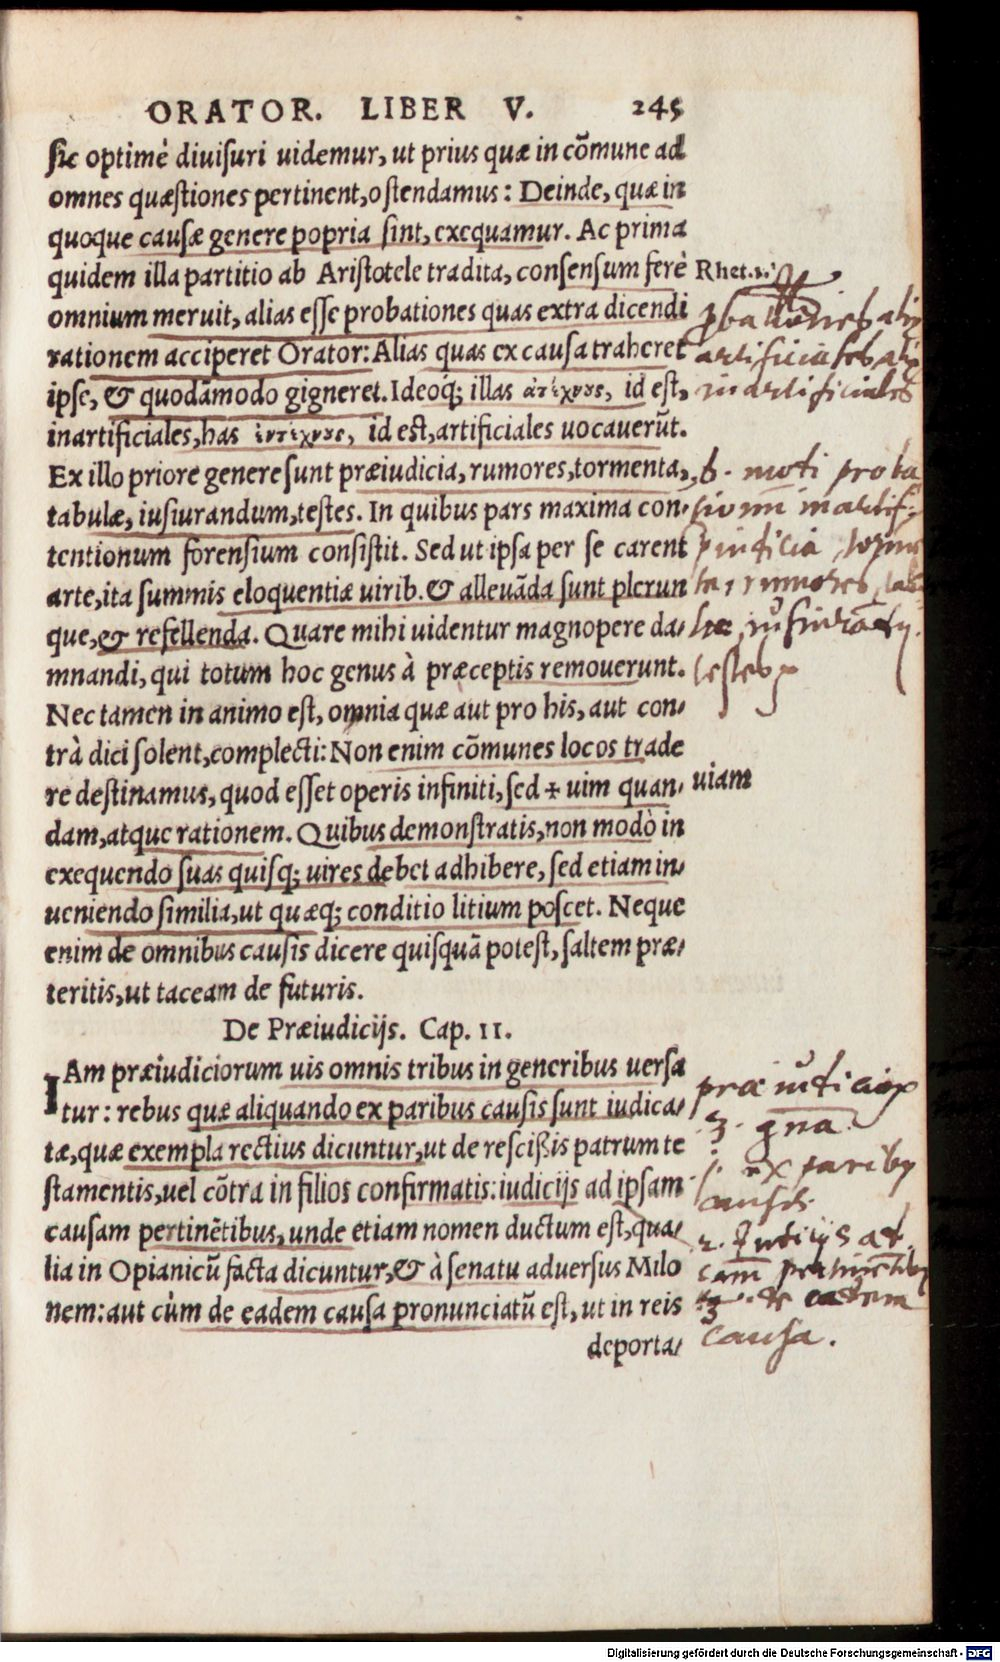 ORATOR. LIBER V. 245
sic optimè diuisuri uidemur, ut prius quæ in cõmune ad
omnes quæstiones pertinent, ostendamus: Deinde, quæ in
quoque causæ genere popria sint, exequamur. Ac prima
quidem illa partitio ab Aristotele tradita, consensum ferè
omnium meruit, alias esse probationes quas extra dicendi
rationem acciperet Orator: Alias quas ex causa traheret
ipse, & quodãmodo gigneret. Ideoq; illas ἀτέχνους, id est,
inartificiales, has ἐντέχνους, id est, artificiales uocauerũt.
Ex illo priore genere sunt præiudicia, rumores, tormenta,
tabulæ, iusiurandum, testes. In quibus pars maxima con-
tentionum forensium consistit. Sed ut ipsa per se carent
arte, ita summis eloquentiæ uirib. & alleuãda sunt plerun
que, & refellenda. Quare mihi uidentur magnopere da-
mnandi, qui totum hoc genus à præceptis remouerunt.
Nec tamen in animo est, omnia quæ aut pro his, aut con-
trà dici solent, complecti: Non enim cõmunes locos trade
re destinamus, quod esset operis infiniti, sed + uim quan-
dam, atque rationem. Quibus demonstratis, non modò in
exequendo suas quisq; uires debet adhibere, sed etiam in-
ueniendo similia, ut quæq; conditio litium poscet. Neque
enim de omnibus causis dicere quisquã potest, saltem præ-
teritis, ut taceam de futuris.
De Præiudicijs. Cap. II.
IAm præiudiciorum uis omnis tribus in generibus uersa
tur: rebus quæ aliquando ex paribus causis sunt iudica-
tæ, quæ exempla rectius dicuntur, ut de rescißis patrum te
stamentis, uel cõtra in filios confirmatis: iudicijs ad ipsam
causam pertinẽtibus, unde etiam nomen ductum est, qua-
lia in Opianicũ facta dicuntur, & à senatu aduersus Milo
nem: aut cùm de eadem causa pronunciatũ est, ut in reis
deporta-
Rhet.1.
artificiales alie
inartificiales
6. moti proba
testes
uiam
3. gña.
1. ex paribus
causis.
2. Iudicijs ad
cam pertinẽtib
3. de eadem
causa.
Digitalisierung gefördert durch die Deutsche Forschungsgemeinschaft - DFG